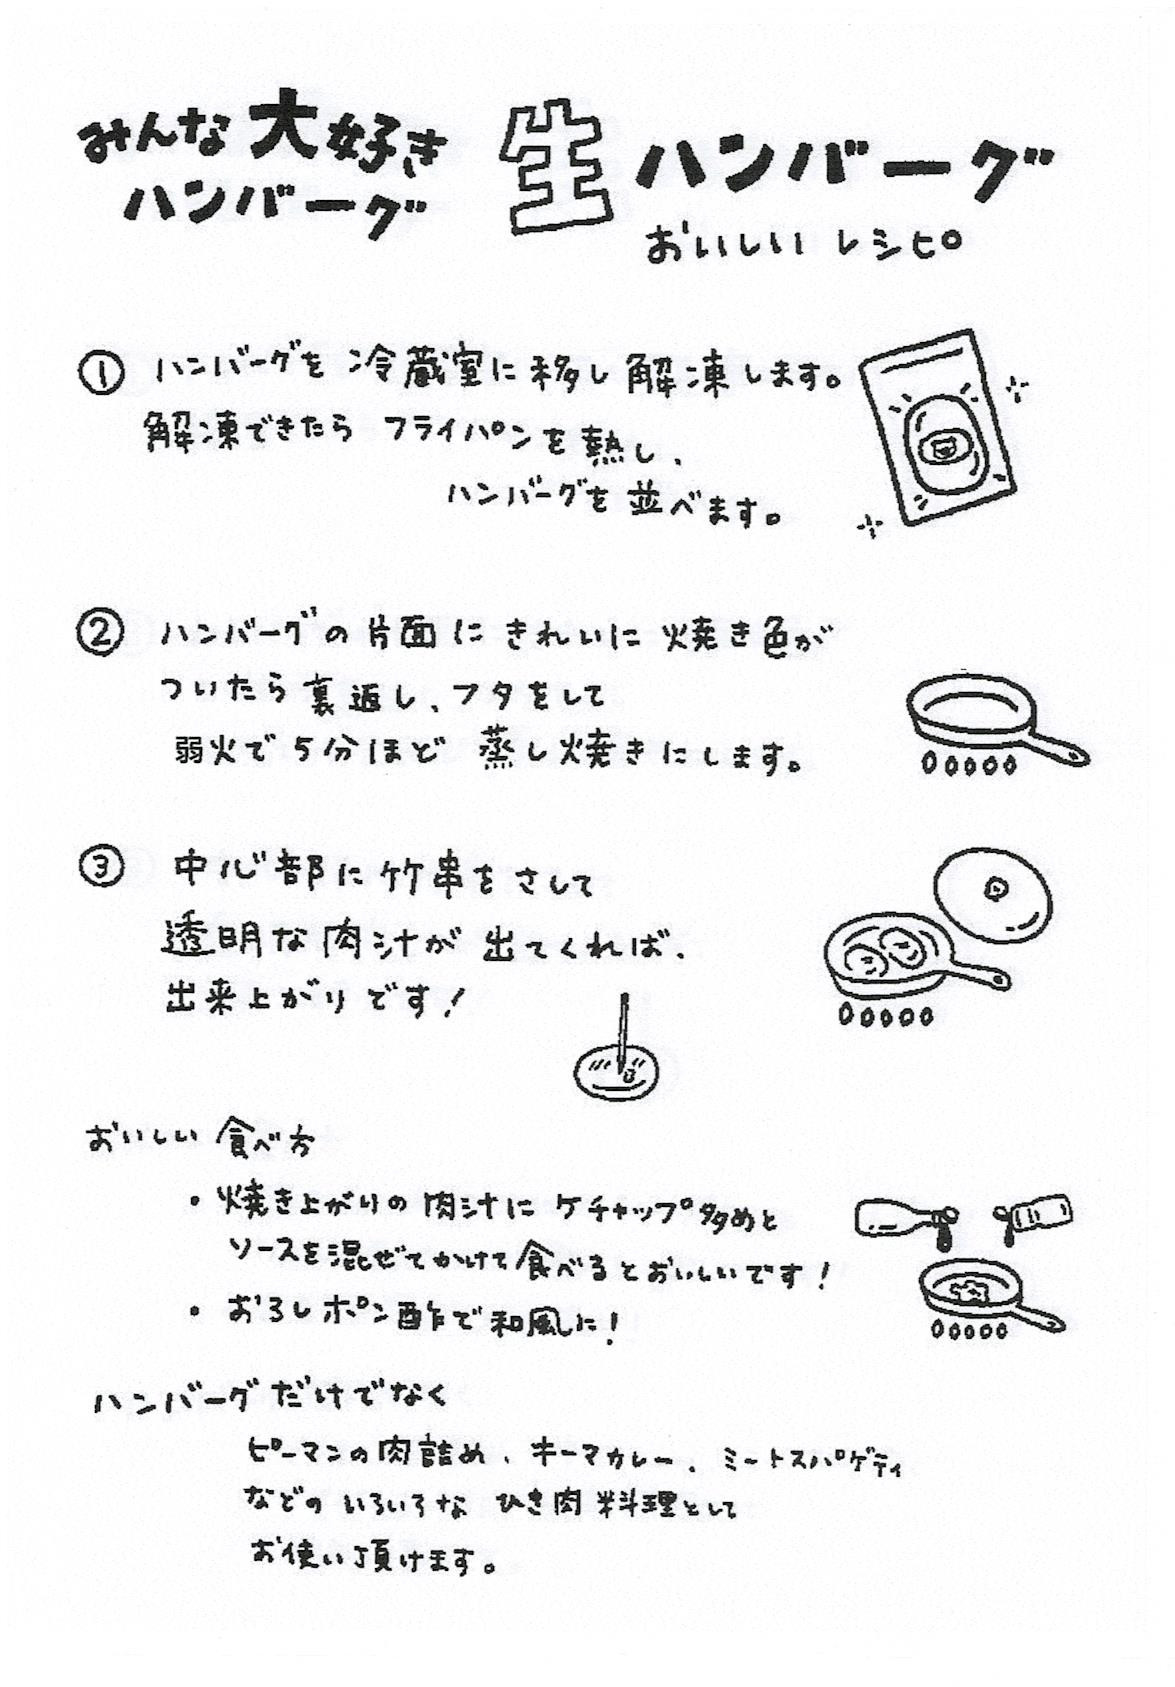 みんな大好き
ハンバーグ
生ハンバーグ
おいしいレシピ
① ハンバーグを冷蔵室に移し解凍します。
解凍できたら フライパンを熱し、
ハンバーグを並べます。
② ハンバーグの片面にきれいに焼き色が
ついたら裏返し、フタをして
弱火で5分ほど 蒸し焼きにします。
③ 中心部に竹串をさして
透明な肉汁が出てくれば、
出来上がりです!
おいしい食べ方
・焼き上がりの肉汁にケチャップ多めと
ソースを混ぜてかけて食べるとおいしいです!
・おろしポン酢で和風に!
ハンバーグだけでなく
ピーマンの肉詰め、キーマカレー、ミートスパゲティ
などの いろいろな ひき肉料理として
お使い頂けます。